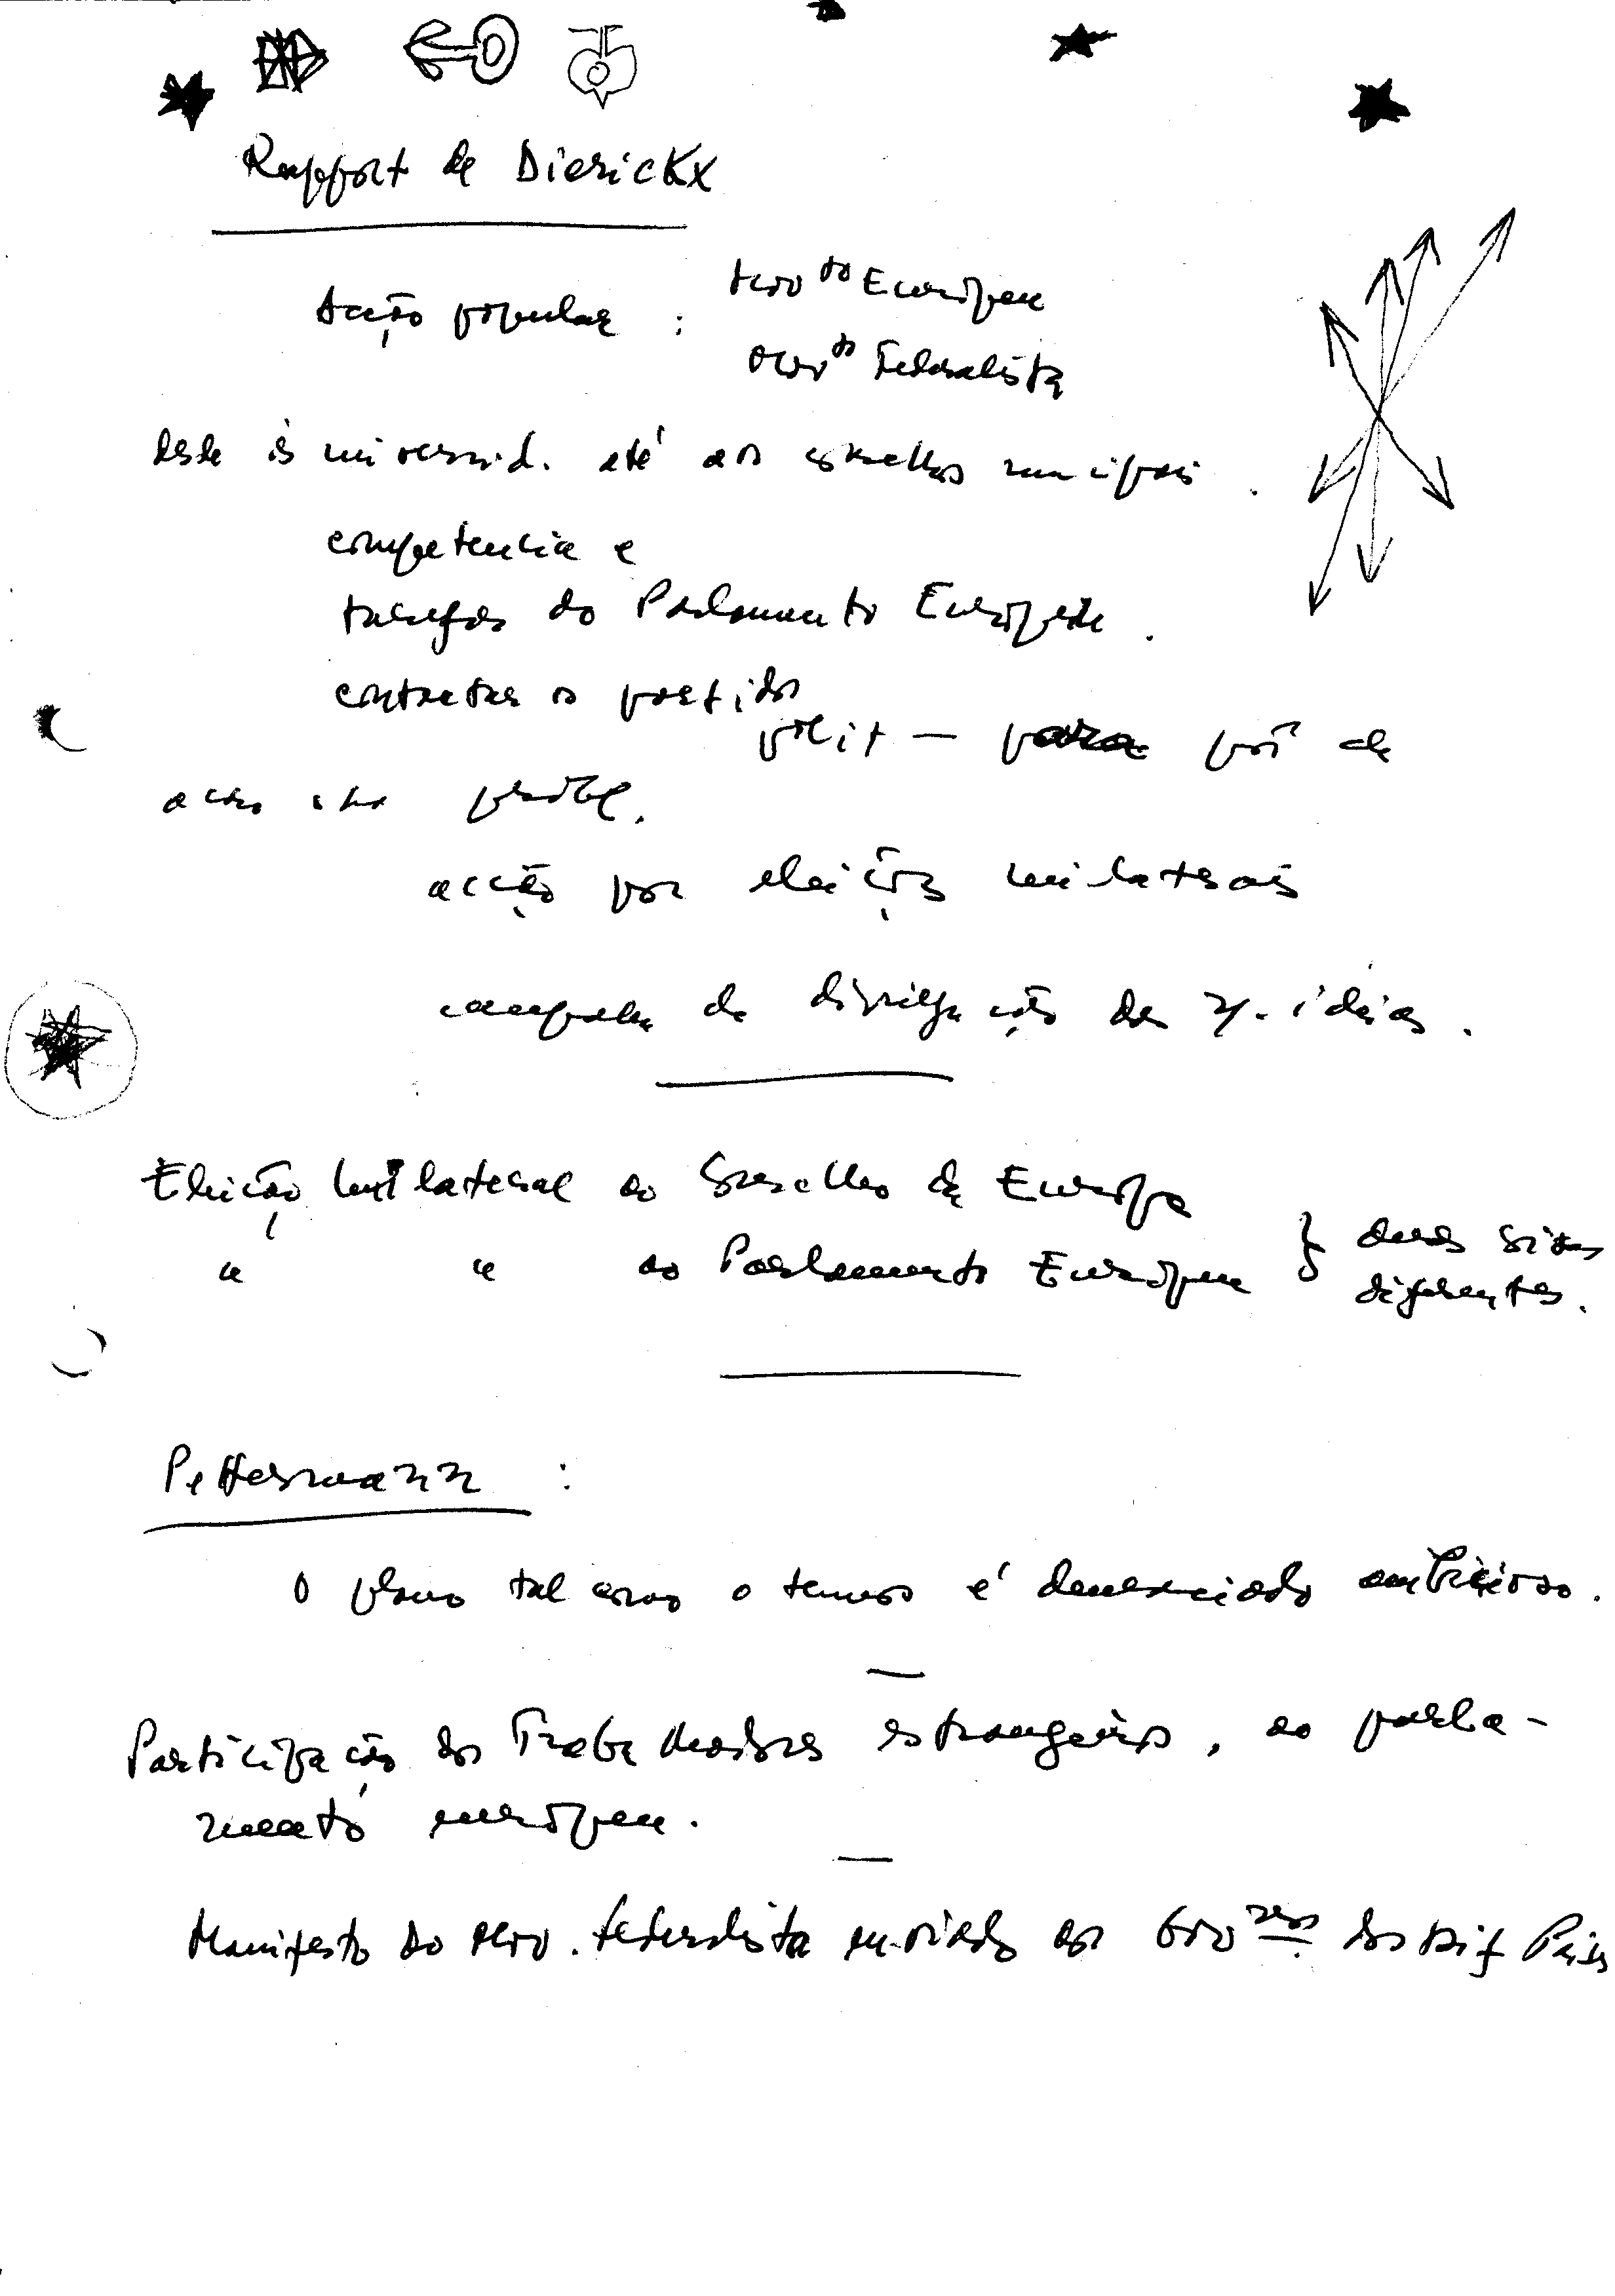 Rapport de Dierickx
Acção popular : mov to Europeu
mov to Federalista
desde as universid. até aos conselhos municipais .
competencia e
tarefas do Parlamento Europeu .
contactar os partidos
polit — para pôr de
acordo probl.
acção por eleições unilaterais
campanha de divulgação das n. ideias .
Eleição Unilateral ao Conselho da Europa
" " ao Parlamento Europeu } duas coisas
diferentes .
Pettermann :
O plano tal como o temos é demasiado ambicioso .
Participação dos Trabalhadores estrangeiros , ao parla-
mento europeu .
Manifesto do mov. federalista enviado aos Gov nos dos dif Países